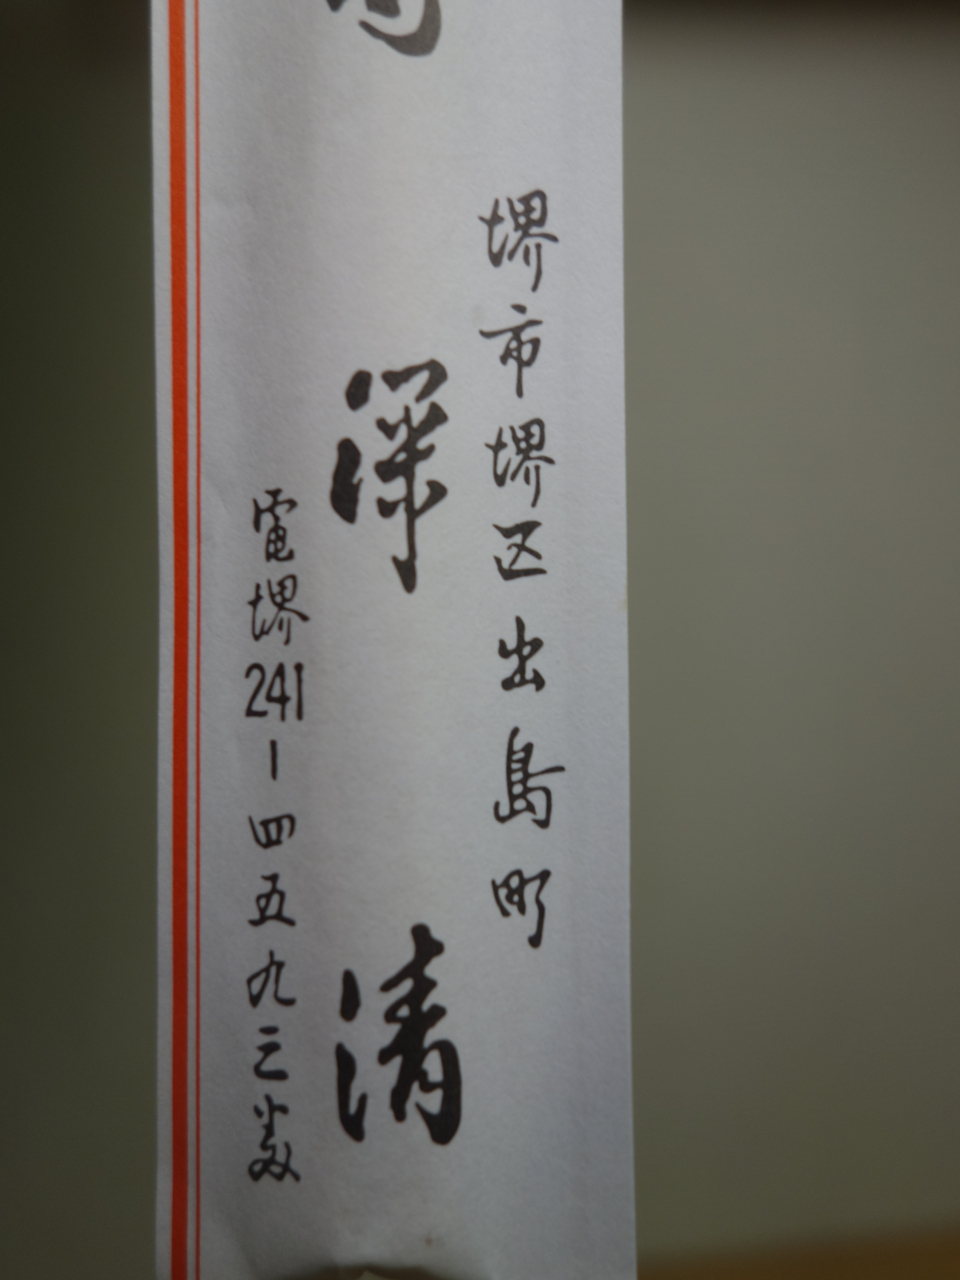 堺市堺区出島町
深清
電堺241-四五九三番